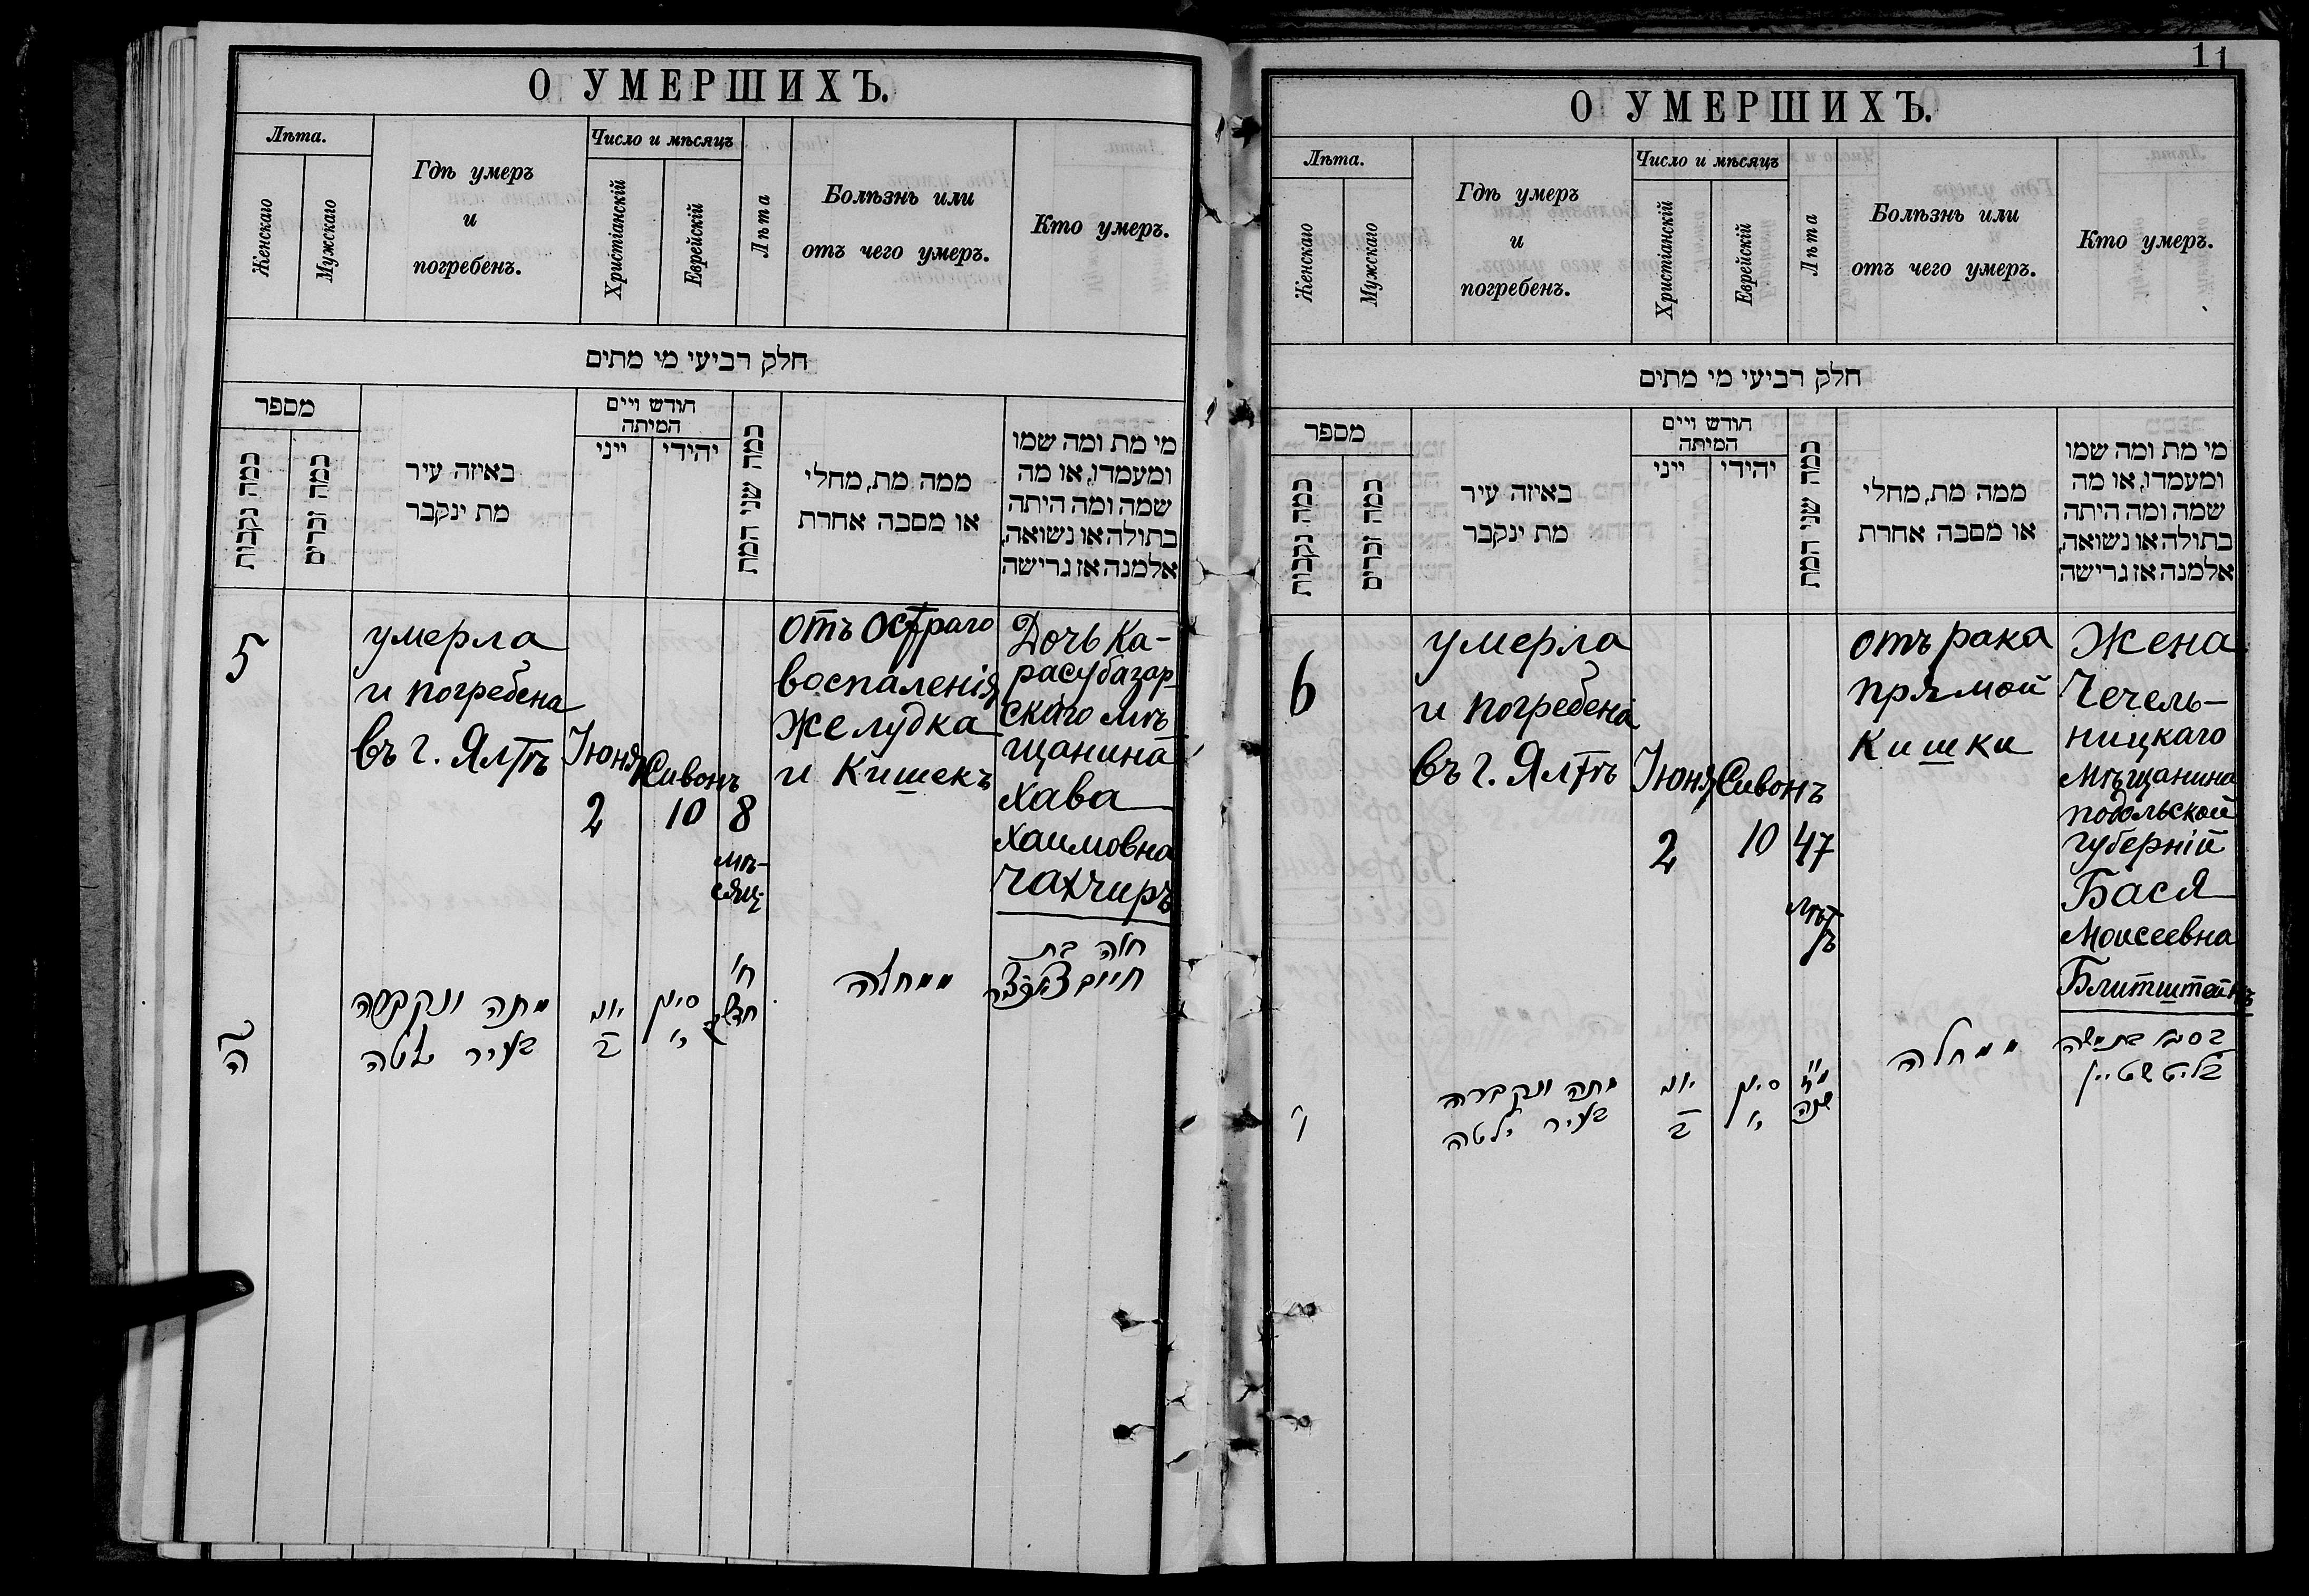 О УМЕРШИХЪ.
Лѣта.
Женскаго
Мужскаго
Гдѣ умеръ
и
погребенъ.
Число и мѣсяцъ
Христіанскій
Еврейскій
Лѣта
Болѣзнь или
отъ чего умеръ.
Кто умеръ.
חלק רביעי מי מתים
מספר
כמה נקבות
כמה זכרים
באיזה עיר
מת ינקבר
חודש ויים
המיתה
ייני
יהודי
כמה שני המת
ממה מת, מחלי
או מסבה אחרת
מי מת ומה שמו
ומעמדו, או מה
שמה ומה היתה
בתולה או נשואה,
אלמנה אז גרישה
5
умерла
и погребена
въ г. Ялтѣ
Іюня
2
Сивонъ
10
8
мѣ-
сяц.
отъ остраго
воспаленія
желудка
и кишекъ
Дочь Ка-
расубазар-
скаго мѣ
щанина
Хава
Хаимовна
Чахчиръ
ה
מתה ונקברה
בעיר ילטה
יוני
ב
סיון
י
ח'
חדשים
ממחלה
חוה בת
חיים
11
О УМЕРШИХЪ.
Лѣта.
Женскаго
Мужскаго
Гдѣ умеръ
и
погребенъ.
Число и мѣсяцъ
Христіанскій
Еврейскій
Лѣта
Болѣзнь или
отъ чего умеръ.
Кто умеръ.
חלק רביעי מי מתים
מספר
כמה נקבות
כמה זכרים
באיזה עיר
מת ינקבר
חודש ויים
המיתה
ייני
יהודי
כמה שני המת
ממה מת, מחלי
או מסבה אחרת
מי מת ומה שמו
ומעמדו, או מה
שמה ומה היתה
בתולה או נשואה,
אלמנה אז גרישה
6
умерла
и погребена
въ г. Ялтѣ
Іюня
2
Сивонъ
10
47
лѣт
ъ
отъ рака
прямой
кишки
Жена
Чечель-
ницкаго
мѣщанина
подольской
губерніи
Бася
Моисеевна
Блитштейнъ
ו
מתה ונקברה
בעיר ילטה
יוני
ב
סיון
י
מ"ז
שנה
ממחלה
בסי' בת משה
בליטשטיין